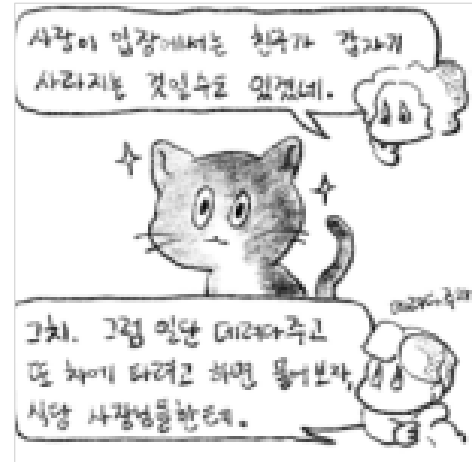 사랑이 입장에서는 친구가 갑자기
사라지는 것일수도 있겠네.
그치. 그럼 일단 데려다주고
또 차에 타려고 하면 물어보자,
식당 사장님들한테.